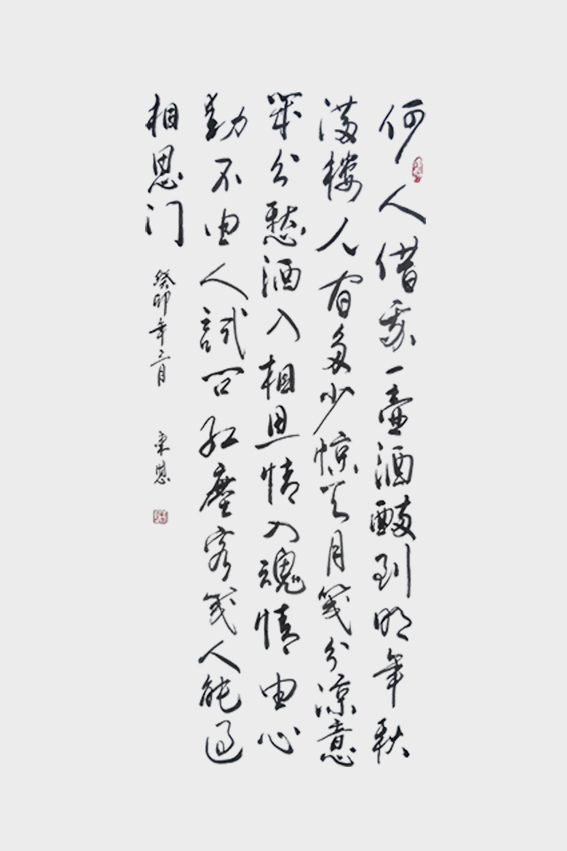 何人借我一壶酒醉到明年秋
满楼人有多少惊天月几分凉意
几分愁酒入相思情入魂情由心
动不由人試问红塵客几人能过
相思门
癸卯年三月